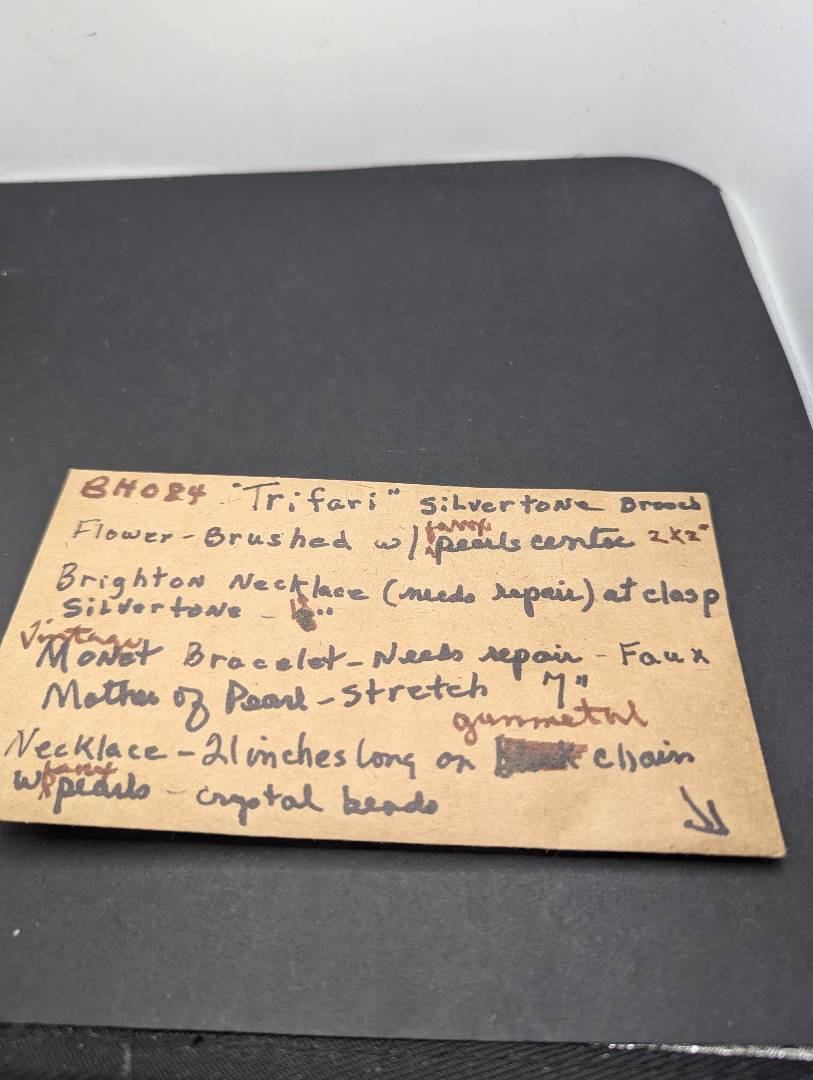 BH084 "Trifari" Silvertone Brooch
Flower - Brushed w/ fancy pearls center 2x2"
Brighton Necklace (needs repair) at clasp
Silvertone -
Vintage
Monet Bracelet - Needs repair - Faux
Mother of Pearl - Stretch 7"
gunmetal
Necklace - 21 inches long on chain
w/ fancy pearls - crystal beads